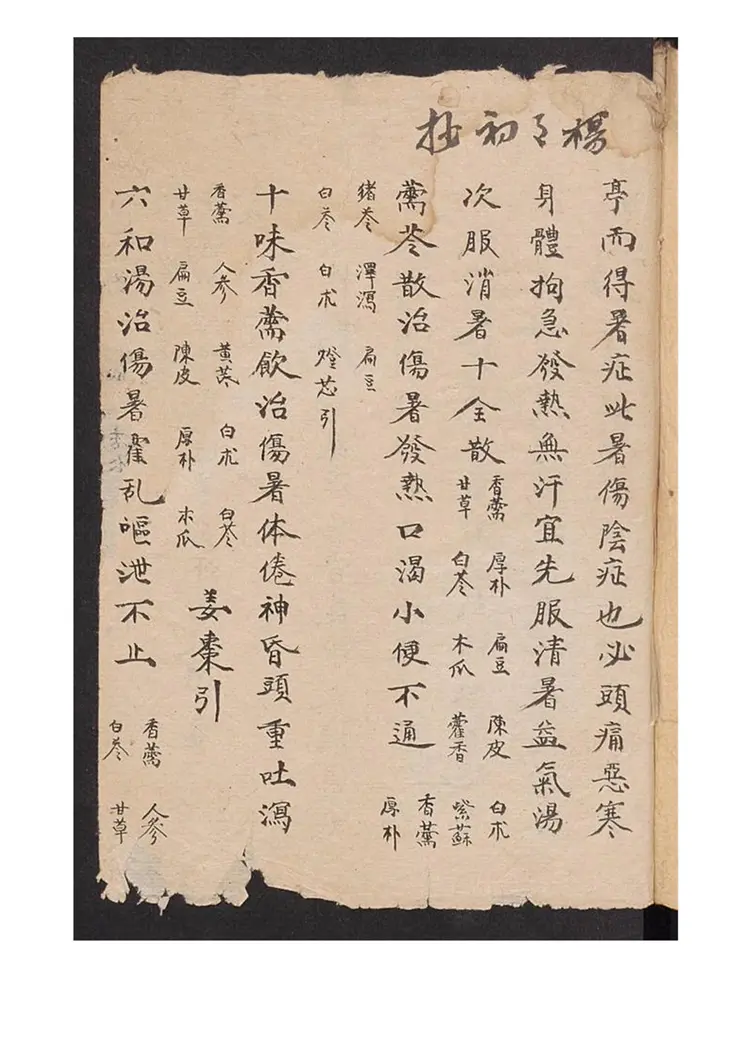 楊 初
亭而得暑症此暑傷陰症也必頭痛惡寒
身體拘急發熱無汗宜先服清暑益氣湯
次服消暑十全散
香薷 厚朴 扁豆 陳皮 白朮
甘草 白苓 木瓜 藿香 紫蘇
薷苓散治傷暑發熱口渴小便不通
香薷
厚朴
猪苓 澤瀉 扁豆
白苓 白朮 燈芯引
十味香薷飲治傷暑体倦神昏頭重吐瀉
香薷 人參 黃芪 白朮 白苓
甘草 扁豆 陳皮 厚朴 木瓜
姜棗引
六和湯治傷暑霍乱嘔泄不止
香薷 人參
白苓 甘草